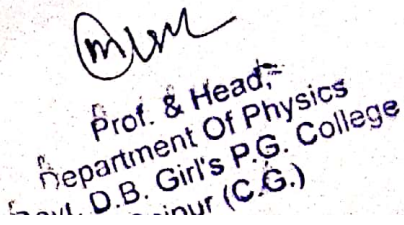 Prof. & Head,
Department Of Physics
D.B. Girl's P.G. College
(C.G.)